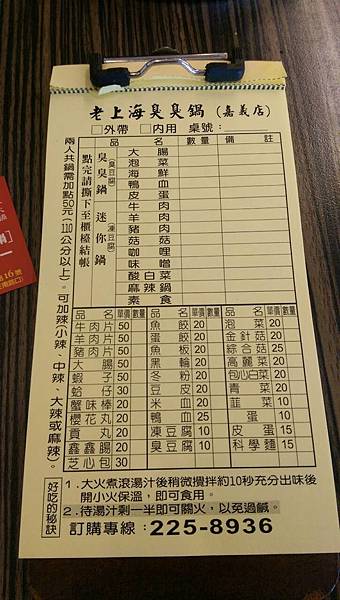 老上海臭臭鍋(嘉義店)
□外帶 □內用 桌號:
品名 數量 備註
臭臭鍋(臭豆腐) 迷你鍋(凍豆腐)
點完請撕下至櫃檯結帳
大腸
泡菜
海鮮
鴨血
皮蛋
牛肉
羊肉
豬肉
菇菇
咖哩
味噌
酸白菜
麻辣鍋
素食
兩人共鍋需加點50元(110公分以上)。可加辣(小辣、中辣、大辣或麻辣)。
品名 單價 數量 品名 單價 數量 品名 單價 數量
牛肉片 50 魚餃 20 泡菜 20
羊肉片 50 蛋餃 20 金針菇 20
豬肉片 50 魚板 20 綜合菇 25
大腸 50 黑輪 20 高麗菜 20
蝦子 50 冬粉 20 包心白菜 20
蛤仔 30 豆皮 20 青菜 20
蟹味棒 20 米血 20 韮菜 20
櫻花丸 20 鴨血 25 蛋 10
貢丸 20 凍豆腐 10 皮蛋 15
鑫鑫腸 20 臭豆腐 10 科學麵 15
芝心包 30
好吃的秘訣
1.大火煮滾湯汁後稍微攪拌約10秒充分出味後
開小火保溫,即可食用。
2.待湯汁剩一半即可關火,以免過鹹。
訂購專線:225-8936
路16號